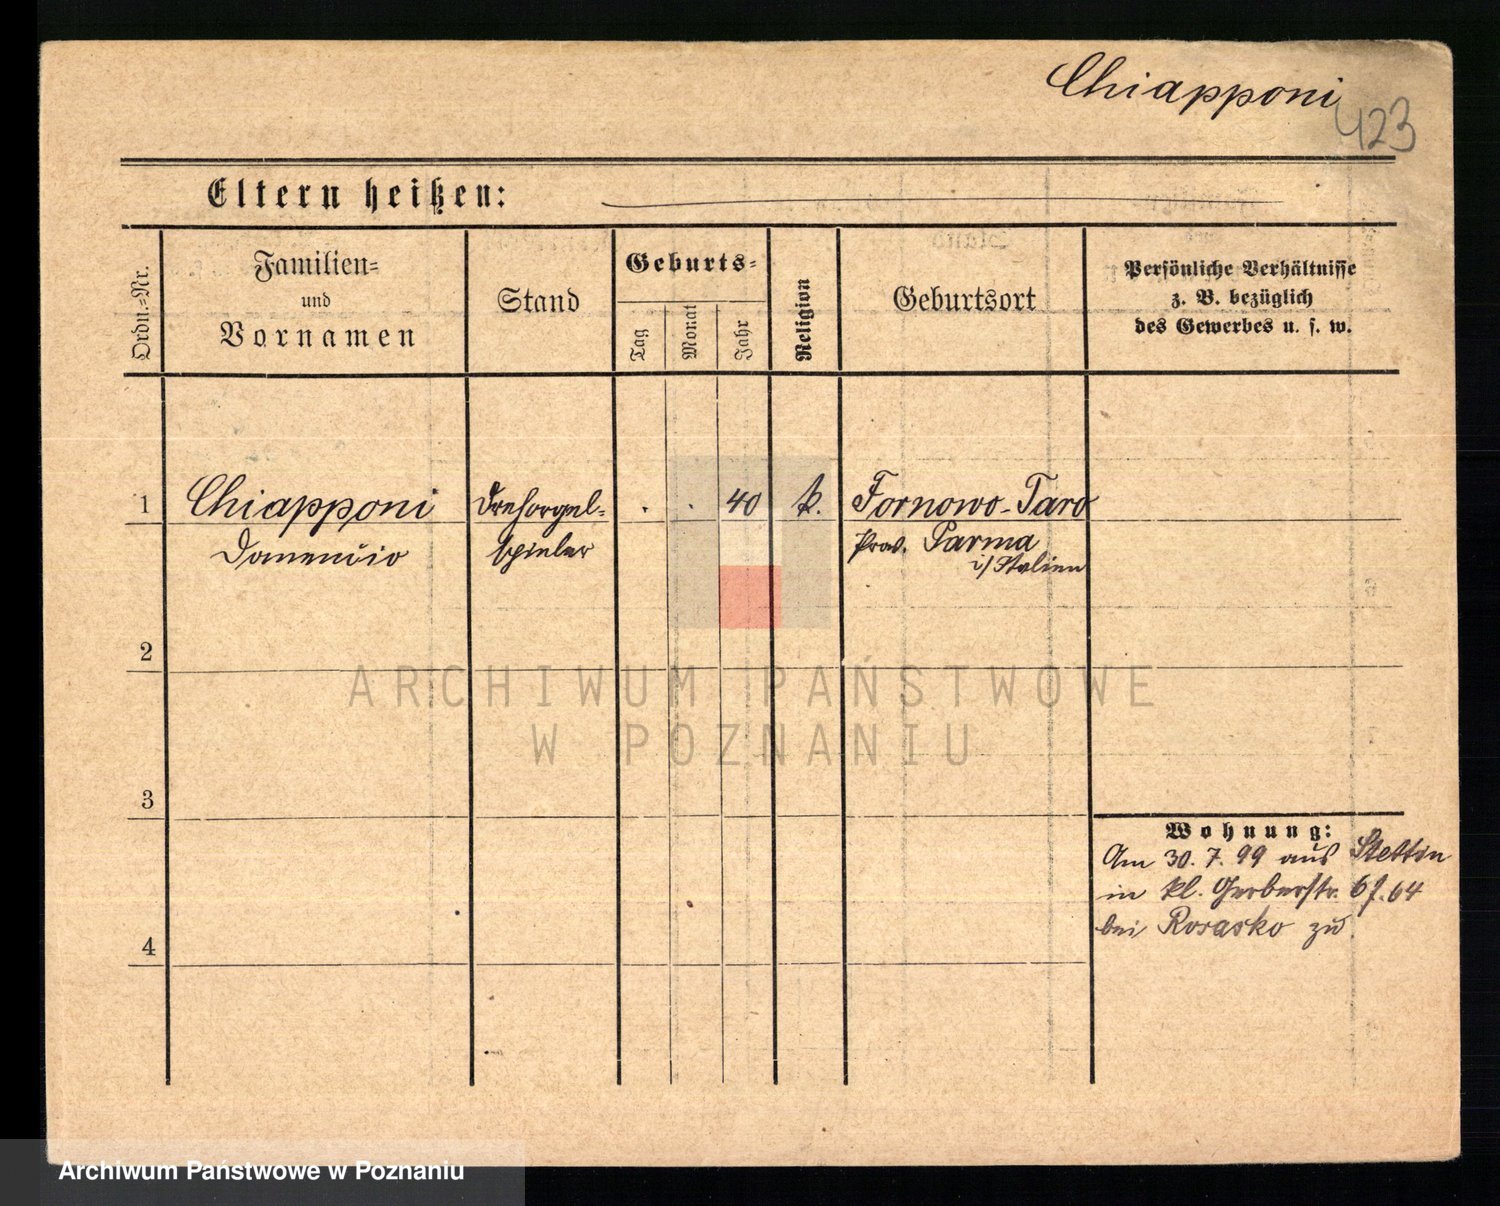 Chiapponi
423
Eltern heißen:
Ordn.-Nr.
Familien-
und
Vornamen
Stand
Geburts-
Tag
Monat
Jahr
Religion
Geburtsort
Persönliche Verhältnisse
z. B. bezüglich
des Gewerbes u. s. w.
1
Chiapponi
Domenicio
Drehorgel-
spieler
40
k.
Fornowo-Taro
Prov. Parma
i/Italien
2
3
4
Wohnung:
Am 30. 7. 99 aus Stettin
in kl. Gerberstr.
bei Rosasko zu.
ARCHIWUM PAŃSTWOWE
W POZNANIU
Archiwum Państwowe w Poznaniu